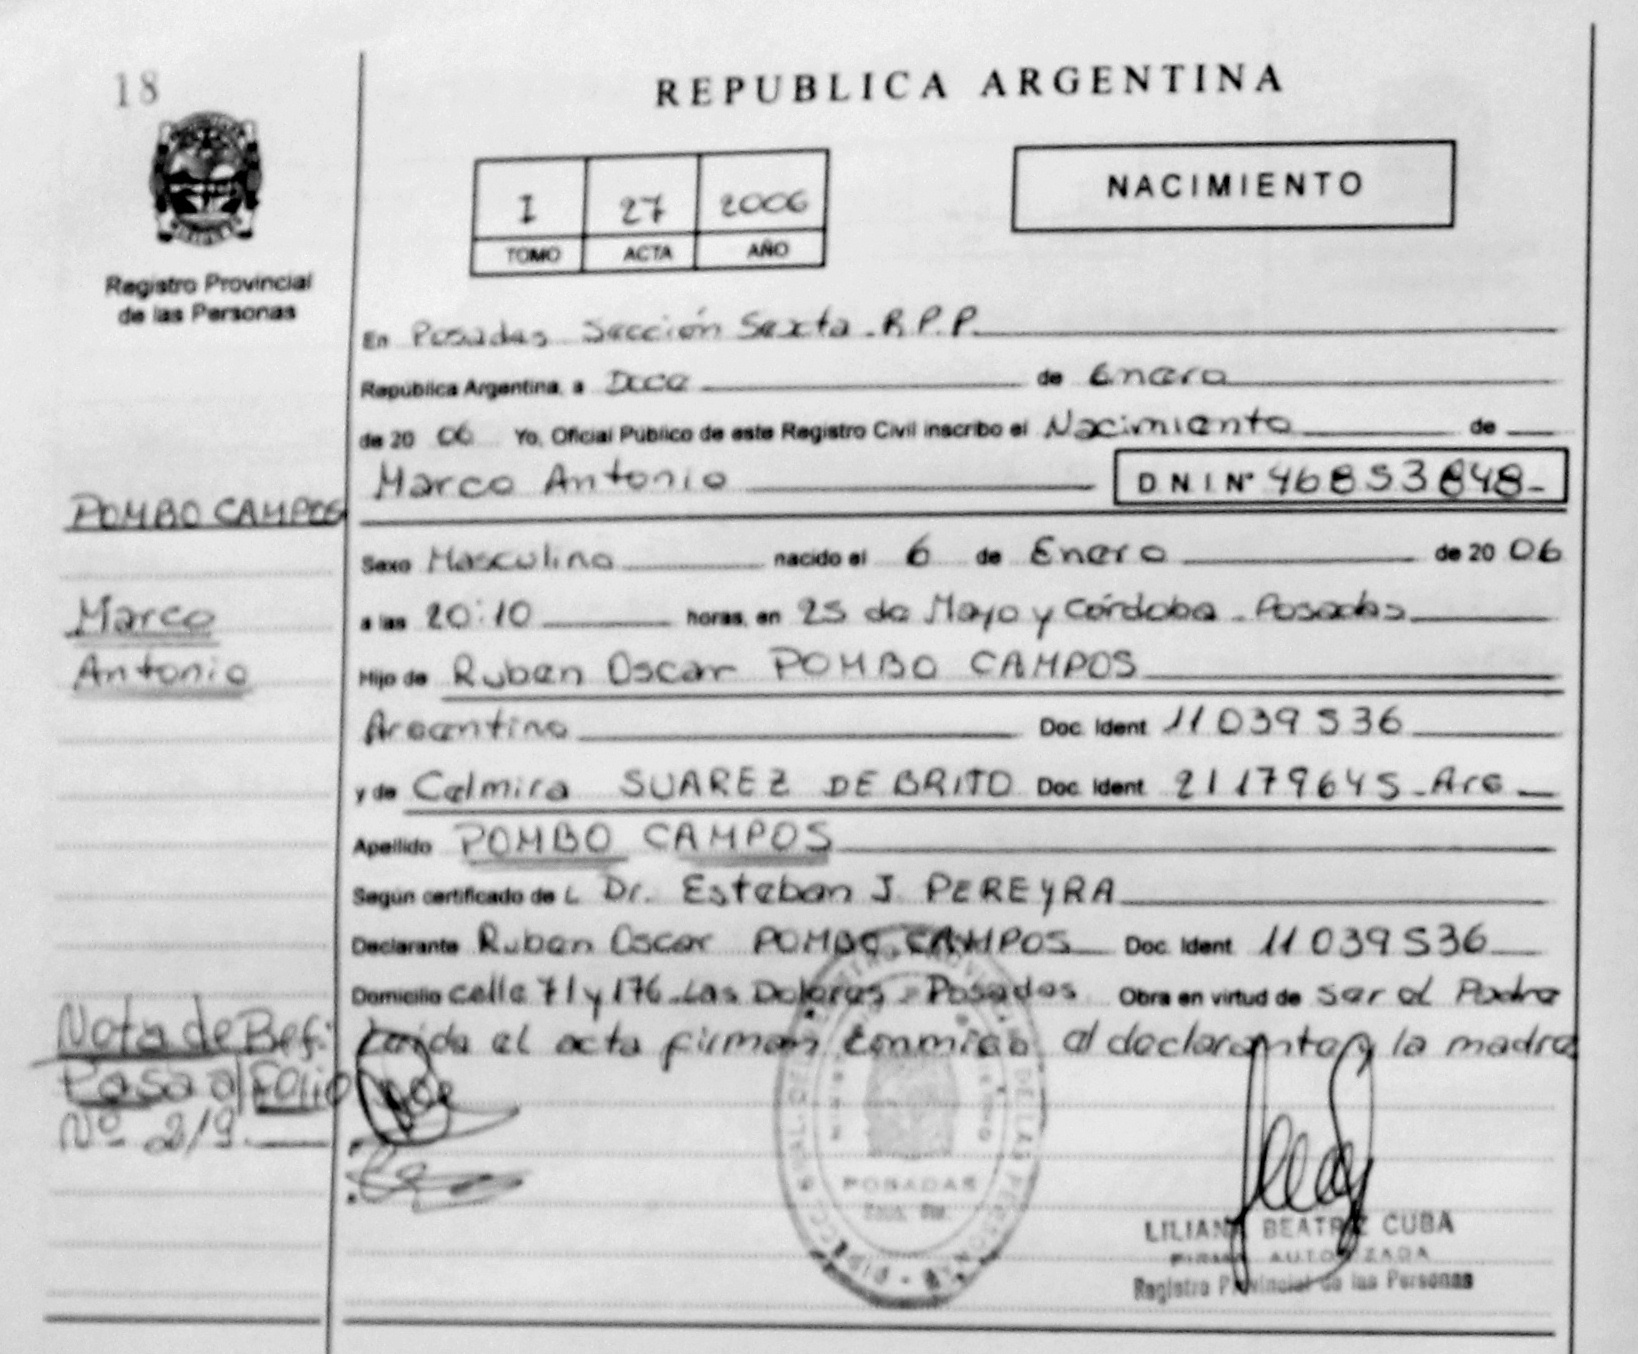 18
REPUBLICA ARGENTINA
I 27 2006
TOMO ACTA AÑO
NACIMIENTO
Registro Provincial
de las Personas
En Posadas Sección Sexta R.P.P.
República Argentina, a Doce de Enero
de 20 06 Yo, Oficial Público de este Registro Civil inscribo el Nacimiento de
Marco Antonio DNI Nº 46853848-
POMBO CAMPOS
Sexo Masculino nacido el 6 de Enero de 20 06
Marco
a las 20:10 horas, en 25 de Mayo y Córdoba - Posadas
Antonio
Hijo de Ruben Oscar POMBO CAMPOS
Argentino Doc. Ident 11039536
y de Celmira SUAREZ DE BRITO Doc. Ident 21179645 - Arg
Apellido POMBO CAMPOS
Según certificado de L Dr. Esteban J. PEREYRA
Declarante Ruben Oscar POMBO CAMPOS Doc. Ident 11039536
Domicilio calle 71 y 176 Las Dolores - Posadas Obra en virtud de ser el Padre
Nota de Ref:
Leida el acta firman conmigo el declarante y la madre
Pasa al Folio
Nº 219
POSADAS
LILIANA BEATRIZ CUBA
FIRMA AUTORIZADA
Registro Provincial de las Personas